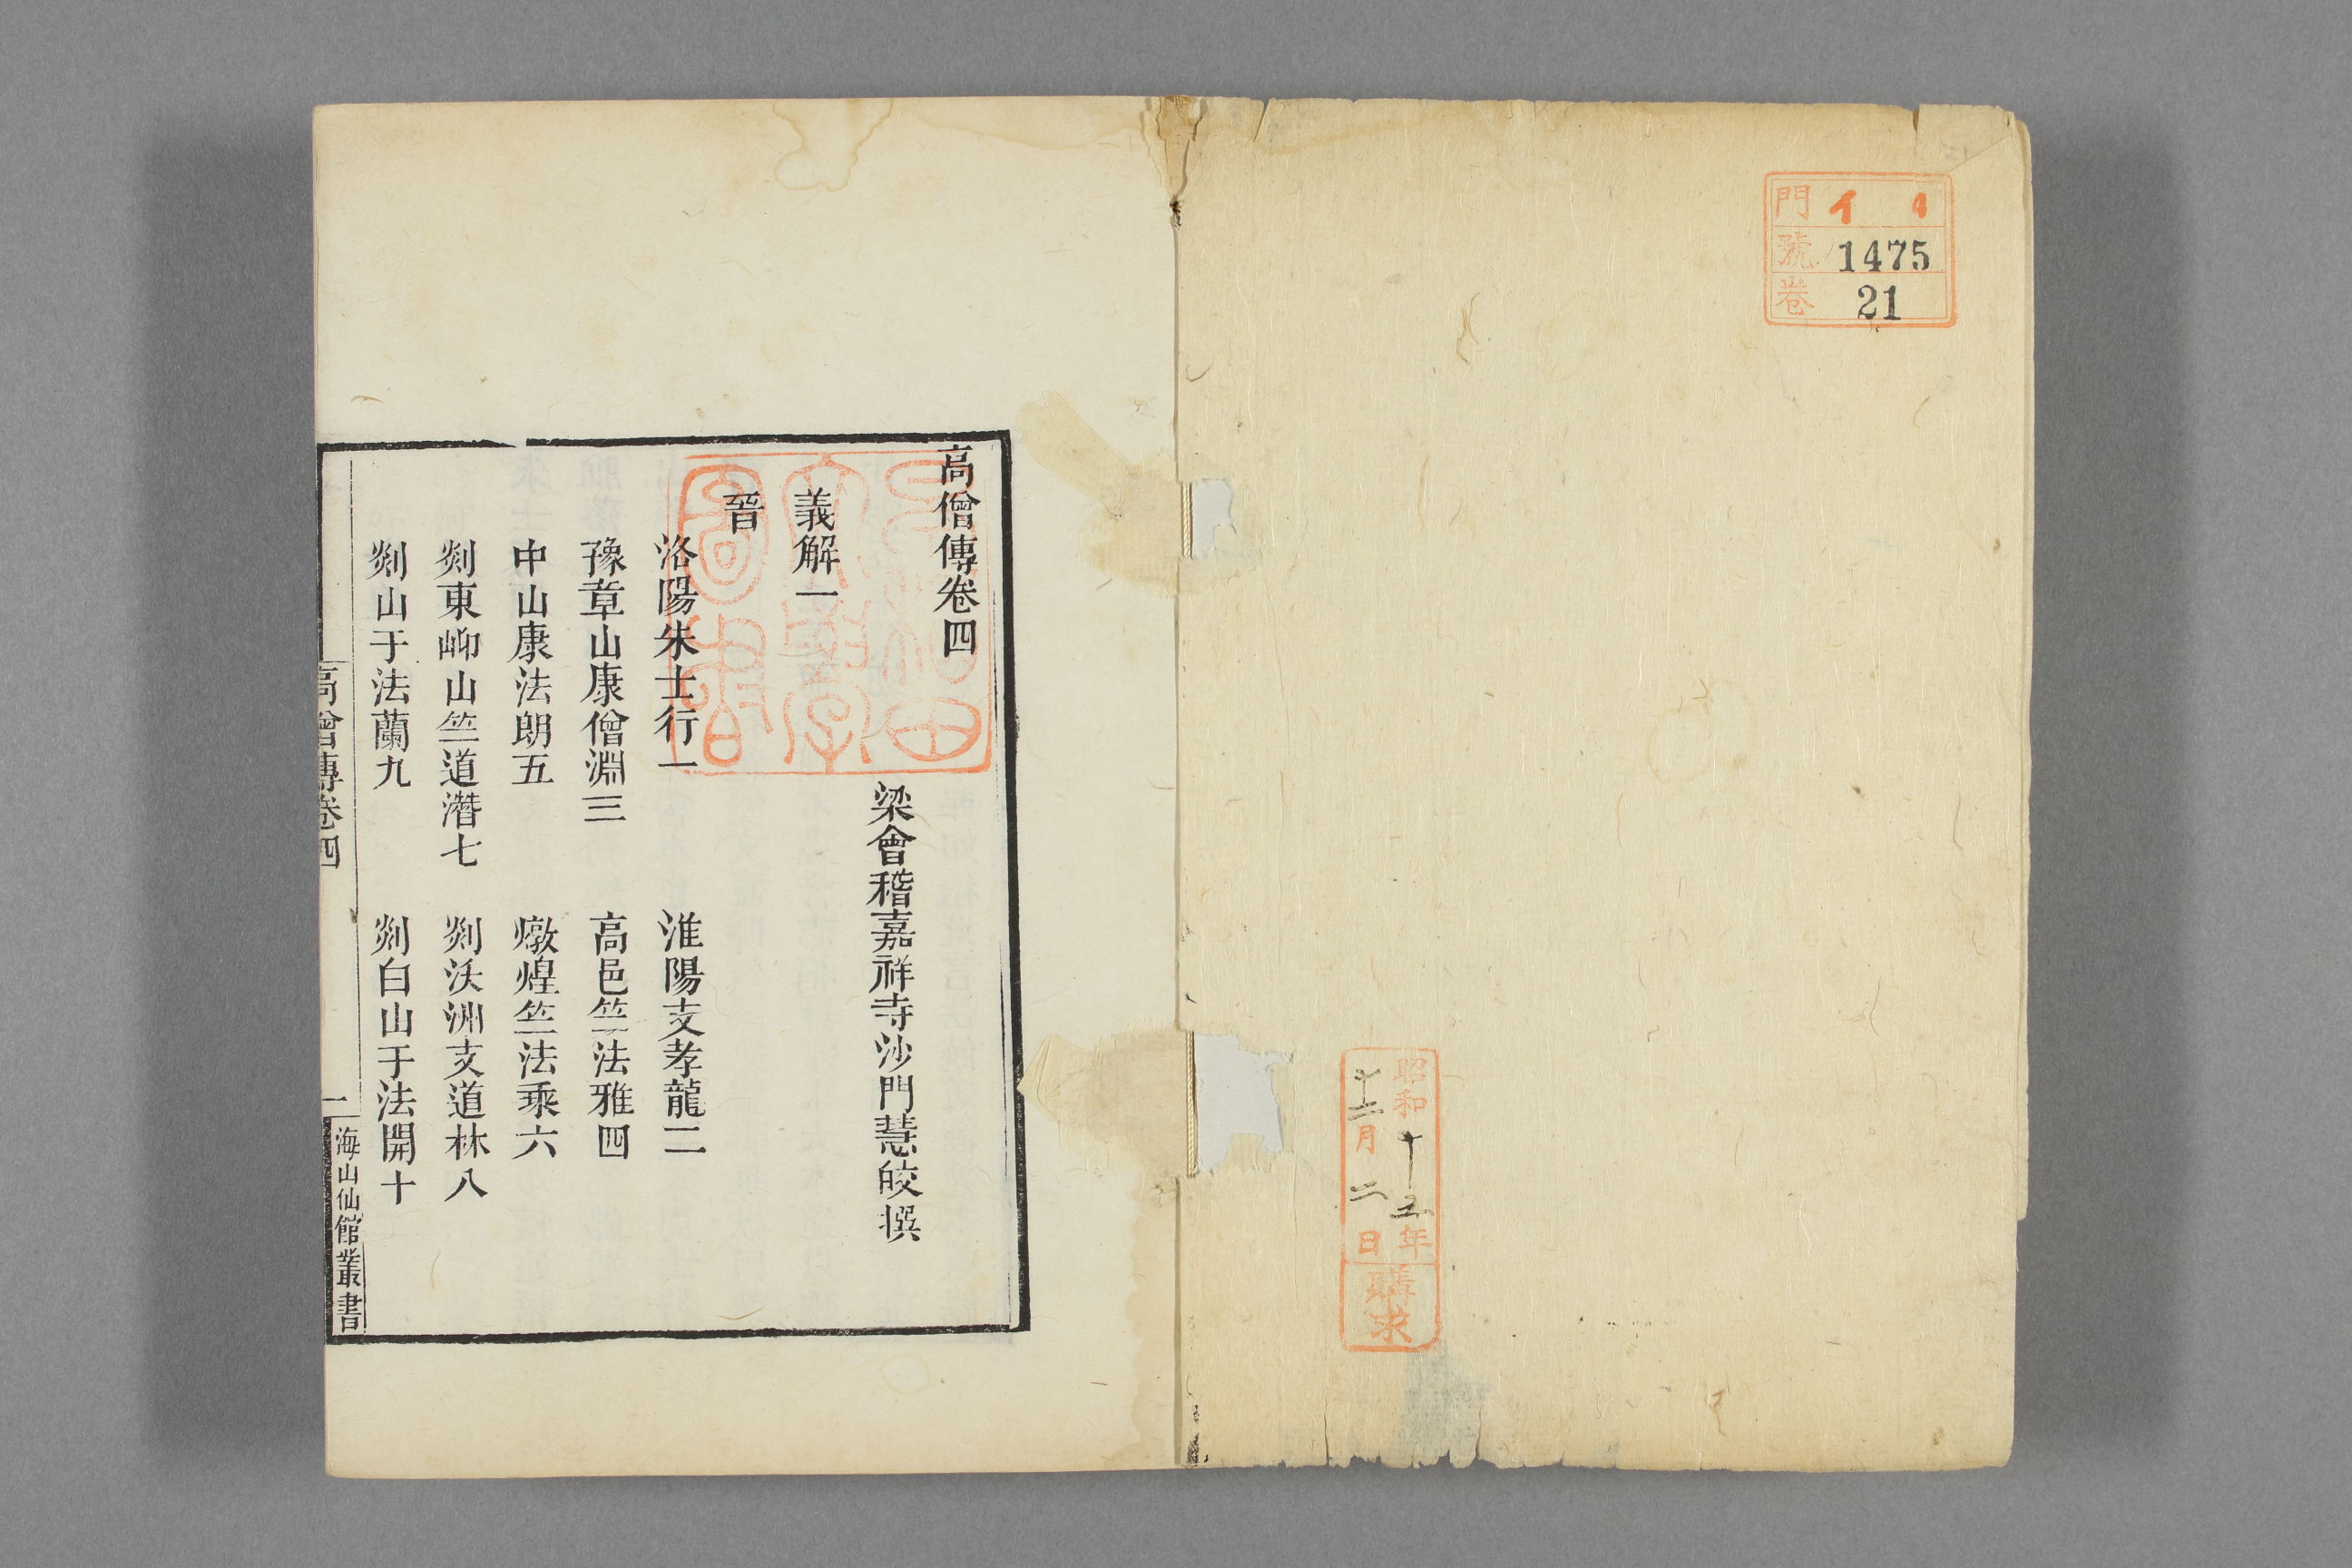 門 イ 4
號 1475
卷 21
昭和十五年
十二月二日
購求
高僧傳卷四
梁會稽嘉祥寺沙門慧皎撰
義解一
晉
洛陽朱士行一 淮陽支孝龍二
豫章山康僧淵三 高邑竺法雅四
中山康法朗五 燉煌竺法乘六
剡東岬山竺道潛七 剡沃洲支道林八
剡山于法蘭九 剡白山于法開十
高僧傳卷四 一 海山仙館叢書